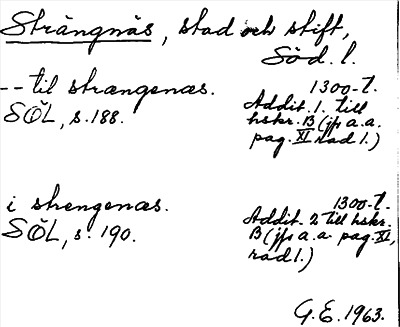 Strängnäs, stad och stift,
Söd. l.
-- til strængenæs. 1300-t.
SÖL, s. 188. Addit. 1. till
hskr. B (jfr a.a.
pag. XI rad 1.)
i strengenæs. 1300-t.
SÖL, s. 190. Addit. 2 till hskr.
B (jfr a.a. pag. XI,
rad 1.)
G.E. 1963.